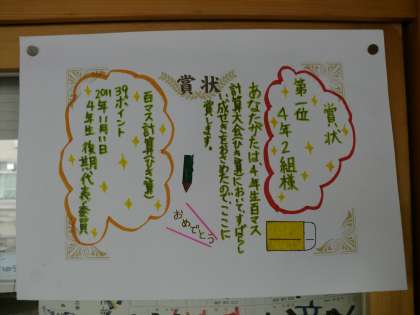 賞状
賞状
第一位
４年２組様
あなたがたは、４年生百マス
計算大会(ひき算)において、すばらし
い成せきをおさめたので、ここに
賞します。
百マス計算(ひき算)
39ポイント
2011年11月11日
４年生 後期代表委員
おめでとう